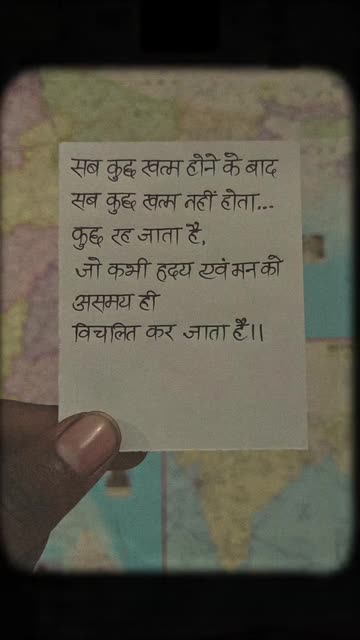 सब कुछ खत्म होने के बाद
सब कुछ खत्म नहीं होता...
कुछ रह जाता है,
जो कभी हृदय एवं मन को
असमय ही
विचलित कर जाता है।।